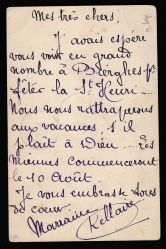 Mes très chers,
J'avais espéré
vous voir en grand
nombre à Berghes pr
fêter la St Henri —
Nous nous rattraperons
aux vacances, s'il
plaît à Dieu — Les
miennes commenceront
le 10 Août
Je vous embrasse tous
de cœur.
Marraine